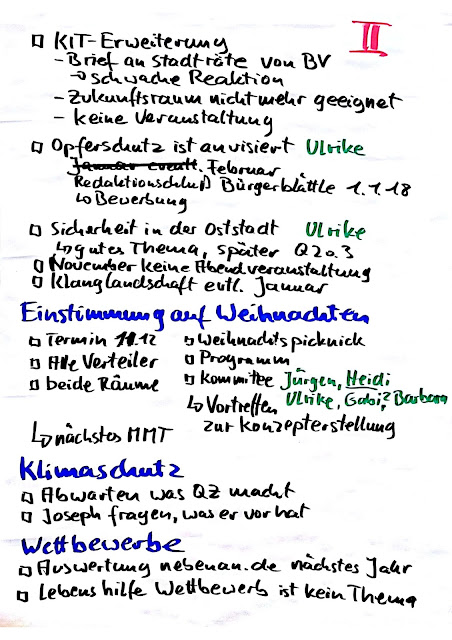 II
□ KIT-Erweiterung
- Brief an Stadträte von BV
→ schwache Reaktion
- Zukunftsraum nicht mehr geeignet
- keine Veranstaltung
□ Opferschutz ist anvisiert Ulrike
Januar eventl. Februar
Redaktionschluß Bürgerblättle 1.1.18
↳ Bewerbung
□ Sicherheit in der Oststadt Ulrike
↳ gutes Thema, später Q2o.3
□ November keine Abendveranstaltung
□ Klanglandschaft evtl. Januar
Einstimmung auf Weihnachten
□ Termin 11.12
□ Alle Verteiler
□ beide Räume
↳ nächstes MMT
□ Weihnachtspicknick
□ Programm
□ Kommittee Jürgen, Heidi
Ulrike, Gabi?, Barbara
↳ Vortreffen
zur Konzepterstellung
Klimaschutz
□ Abwarten was QZ macht
□ Joseph fragen, was er vor hat
Wettbewerbe
□ Auswertung nebenan.de nächstes Jahr
□ Lebenshilfe Wettbewerb ist kein Thema